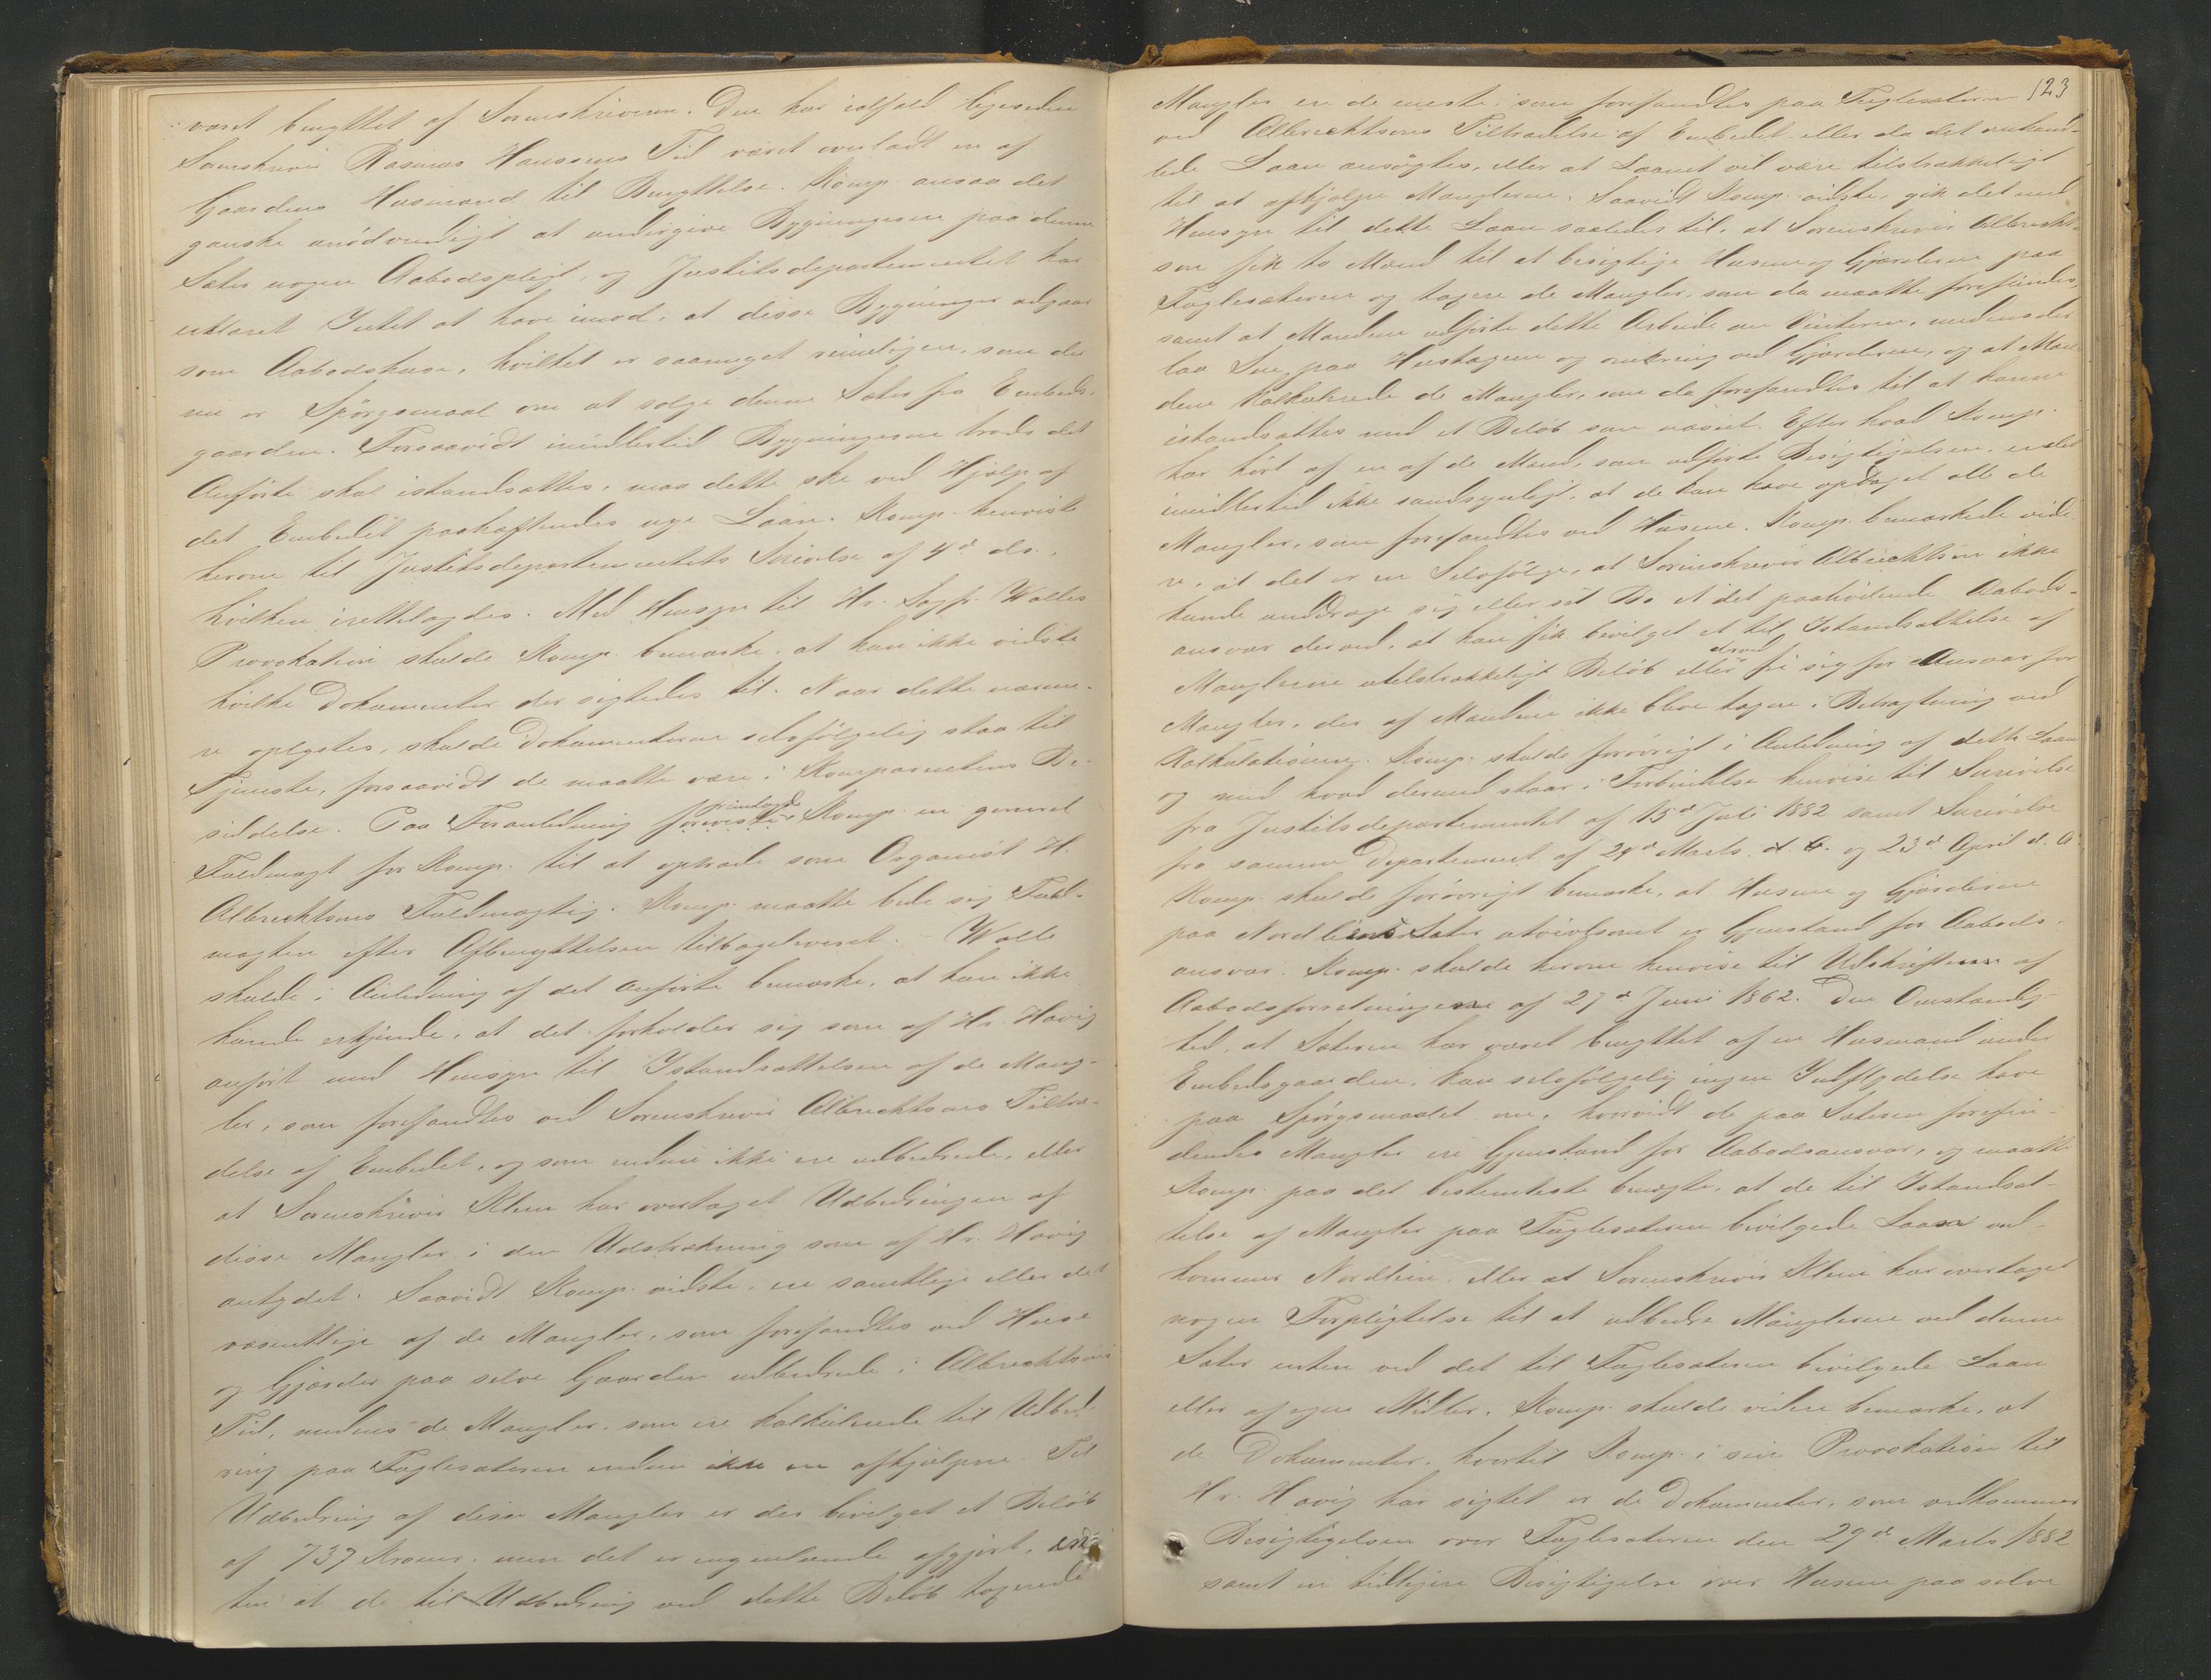 været benyttet af Sorenskriveren. Den har ialfald ligesiden
Sorenskriver Rasmus Hanssens Tid været overladt en af
Gaardens Husmænd til Benyttelse. Komp. ansaa det
ganske unødvendigt at undergive Bygningerne paa denne
Sæter nogen Aabodspligt, og Justitsdepartementet har
erklæret Intet at have imod, at disse Bygninger udgaar
som Aabodshuse, hvilket er saameget rimeligere, som der
nu er Spörgsmaal om at sælge denne Sæter fra Embeds-
gaarden. Forsaavidt imidlertid Bygningerne trods det
Anförte skal istandsættes, maa dette ske ved Hjælp af
det Embedet paahæftendes nye Laan. Komp. henviste
herom til Justitsdepartementets Skrivelse af 4de ds.,
hvilken irettelagdes. Med Hensyn til Hr. Sagf. Walles
Provokation skulde Komp. bemærke, at han ikke vidste
hvilke Dokumenter der sigtedes til. Naar dette nærme-
re oplystes, skulde Dokumenterne selvfölgelig staa til
Tjeneste, forsaavidt de maatte være i Komparentens Be-
siddelse. Paa Foranledning foreviste Komp. en general
Fuldmagt for Komp. til at optræde som Organist H.
Albrechtsons Fuldmægtig. Komp. maatte bede sig Fuld-
magten efter Afbenyttelsen tilbageleveret. – Walle
skulde i Anledning af det Anförte bemærke, at han ikke
kunde erkjende, at det forholder sig som af Hr. Havig
anfört med Hensyn til Istandsættelsen af de Mang-
ler, som forefandtes ved Sorenskriver Albrechtsons Tiltræ-
delse af Embedet, og som endnu ikke ere udbedrede, eller
at Sorenskriver Klem har overtaget Udbedringen af
disse Mangler i den Udstrækning som af Hr. Havig
antydet. Saavidt Komp. vidste, ere samtlige eller det
væsentlige af de Mangler, som forefandtes ved Huse
og Gjærder paa selve Gaarden udbedrede i Albrechtsons
Tid, medens de Mangler, som ere kalkulerede til Udbed-
ring paa Fuglesæteren endnu ikke ere afhjulpne. Til
Udbedring af disse Mangler er der bevilget et Belöb
af 737 Kroner, men det er ingenlunde afgjort, en-
ten at de til Udbedring ved dette Belöb tagerede
123
Mangler er de eneste, som forefandtes paa Fuglesæteren
ved Albrechtsons Tiltrædelse af Embedet eller da det omhand-
lede Laan ansögtes, eller at Laanet vil være tilstrækkeligt
til at afhjælpe Manglerne. Saavidt Komp. vidste, gik det med
Hensyn til dette Laan saaledes til, at Sorenskriver Albrecht-
son fik to Mænd til at besigtige Husene og Gjærderne paa
Fuglesæteren og taxere de Mangler, som da maatte forefindes,
samt at Mændene udförte dette Arbeide om Vinteren, medens der
laa Sne paa Hustagene og omkring ved Gjærderne, og at Mæn-
dene kalkulerede de Mangler, som da forefandtes til at kunne
istandsættes med et Belöb som nævnt. Efter hvad Komp.
har hört af en af de Mænd, som udförte Besigtigelsen, er det
imidlertid ikke sandsynligt, at de kan have opdaget alle de
Mangler, som forefandtes ved Husene. Komp. bemærkede vide-
re, at det er en Selvfölge, at Sorenskriver Albrechtson ikke
kunde unddrage sig eller sit Bo et det paahvilende Aabods-
ansvar derved, at han fik bevilget et til Istandsættelse af
Manglerne utilstrækkeligt Belöb eller derved fri sig for Ansvar for
Mangler, der af Mændene ikke bleve tagne i Betragtning ved
Kalkulationen. Komp. skulde forövrigt i Anledning af dette Laan
og med hvad dermed staar i Forbindelse henvise til Skrivelse
fra Justitsdepartementet af 15de Juli 1882 samt Skrivelse
fra samme Departement af 29de Marts d. A. og 23de April d. A.
Komp. skulde forövrigt bemærke, at Husene og Gjærderne
paa Nordliens Sæter utvivlsomt er Gjenstand for Aabods-
ansvar. Komp. skulde herom henvise til Udskriften af
Aabodsforretningerne af 27de Juni 1862. Den Omstændig-
hed, at Sæteren har været benyttet af en Husmand under
Embedsgaarden, kan selvfölgelig ingen Indflydelse have
paa Spörgsmaalet om, hvorvidt de paa Sæteren forefin-
dendes Mangler ere Gjenstand for Aabodsansvar, og maatte
Komp. paa det bestemteste benægte, at de til Istandsæt-
telse af Mangler paa Fuglesæteren bevilgede Laan ved-
kommer Nordlien, eller at Sorenskriver Klem har overtaget
nogen Forpligtelse til at udbedre Manglerne ved denne
Sæter enten ved det til Fuglesæteren bevilgede Laan
eller af egne Midler. Komp. skulde videre bemærke, at
de Dokumenter, hvortil Komp. i sin Provokation til
Hr. Havig har sigtet er de Dokumenter, som vedkommer
Besigtigelsen over Fuglesæteren den 29de Marts 1882
samt en tidligere Besigtigelse over Husene paa selve